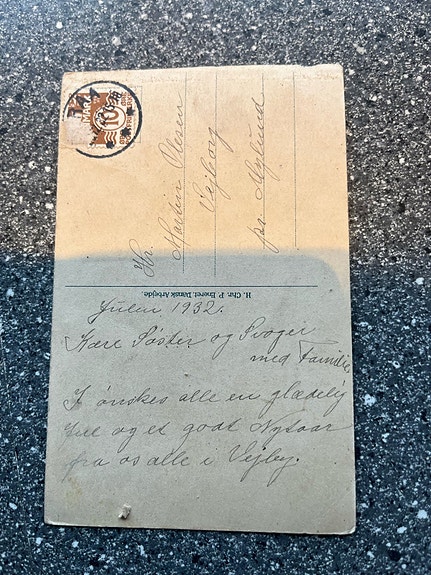 Hr.
Martin Olesen
Vejborg
pr Mylund
H. Chr. P. Eneret. Dansk Arbejde.
Julen 1932.
Kære Søster og Svoger
med Familie
I ønskes alle en glædelig
Jul og et godt Nytaar
fra os alle i Vejby.
10